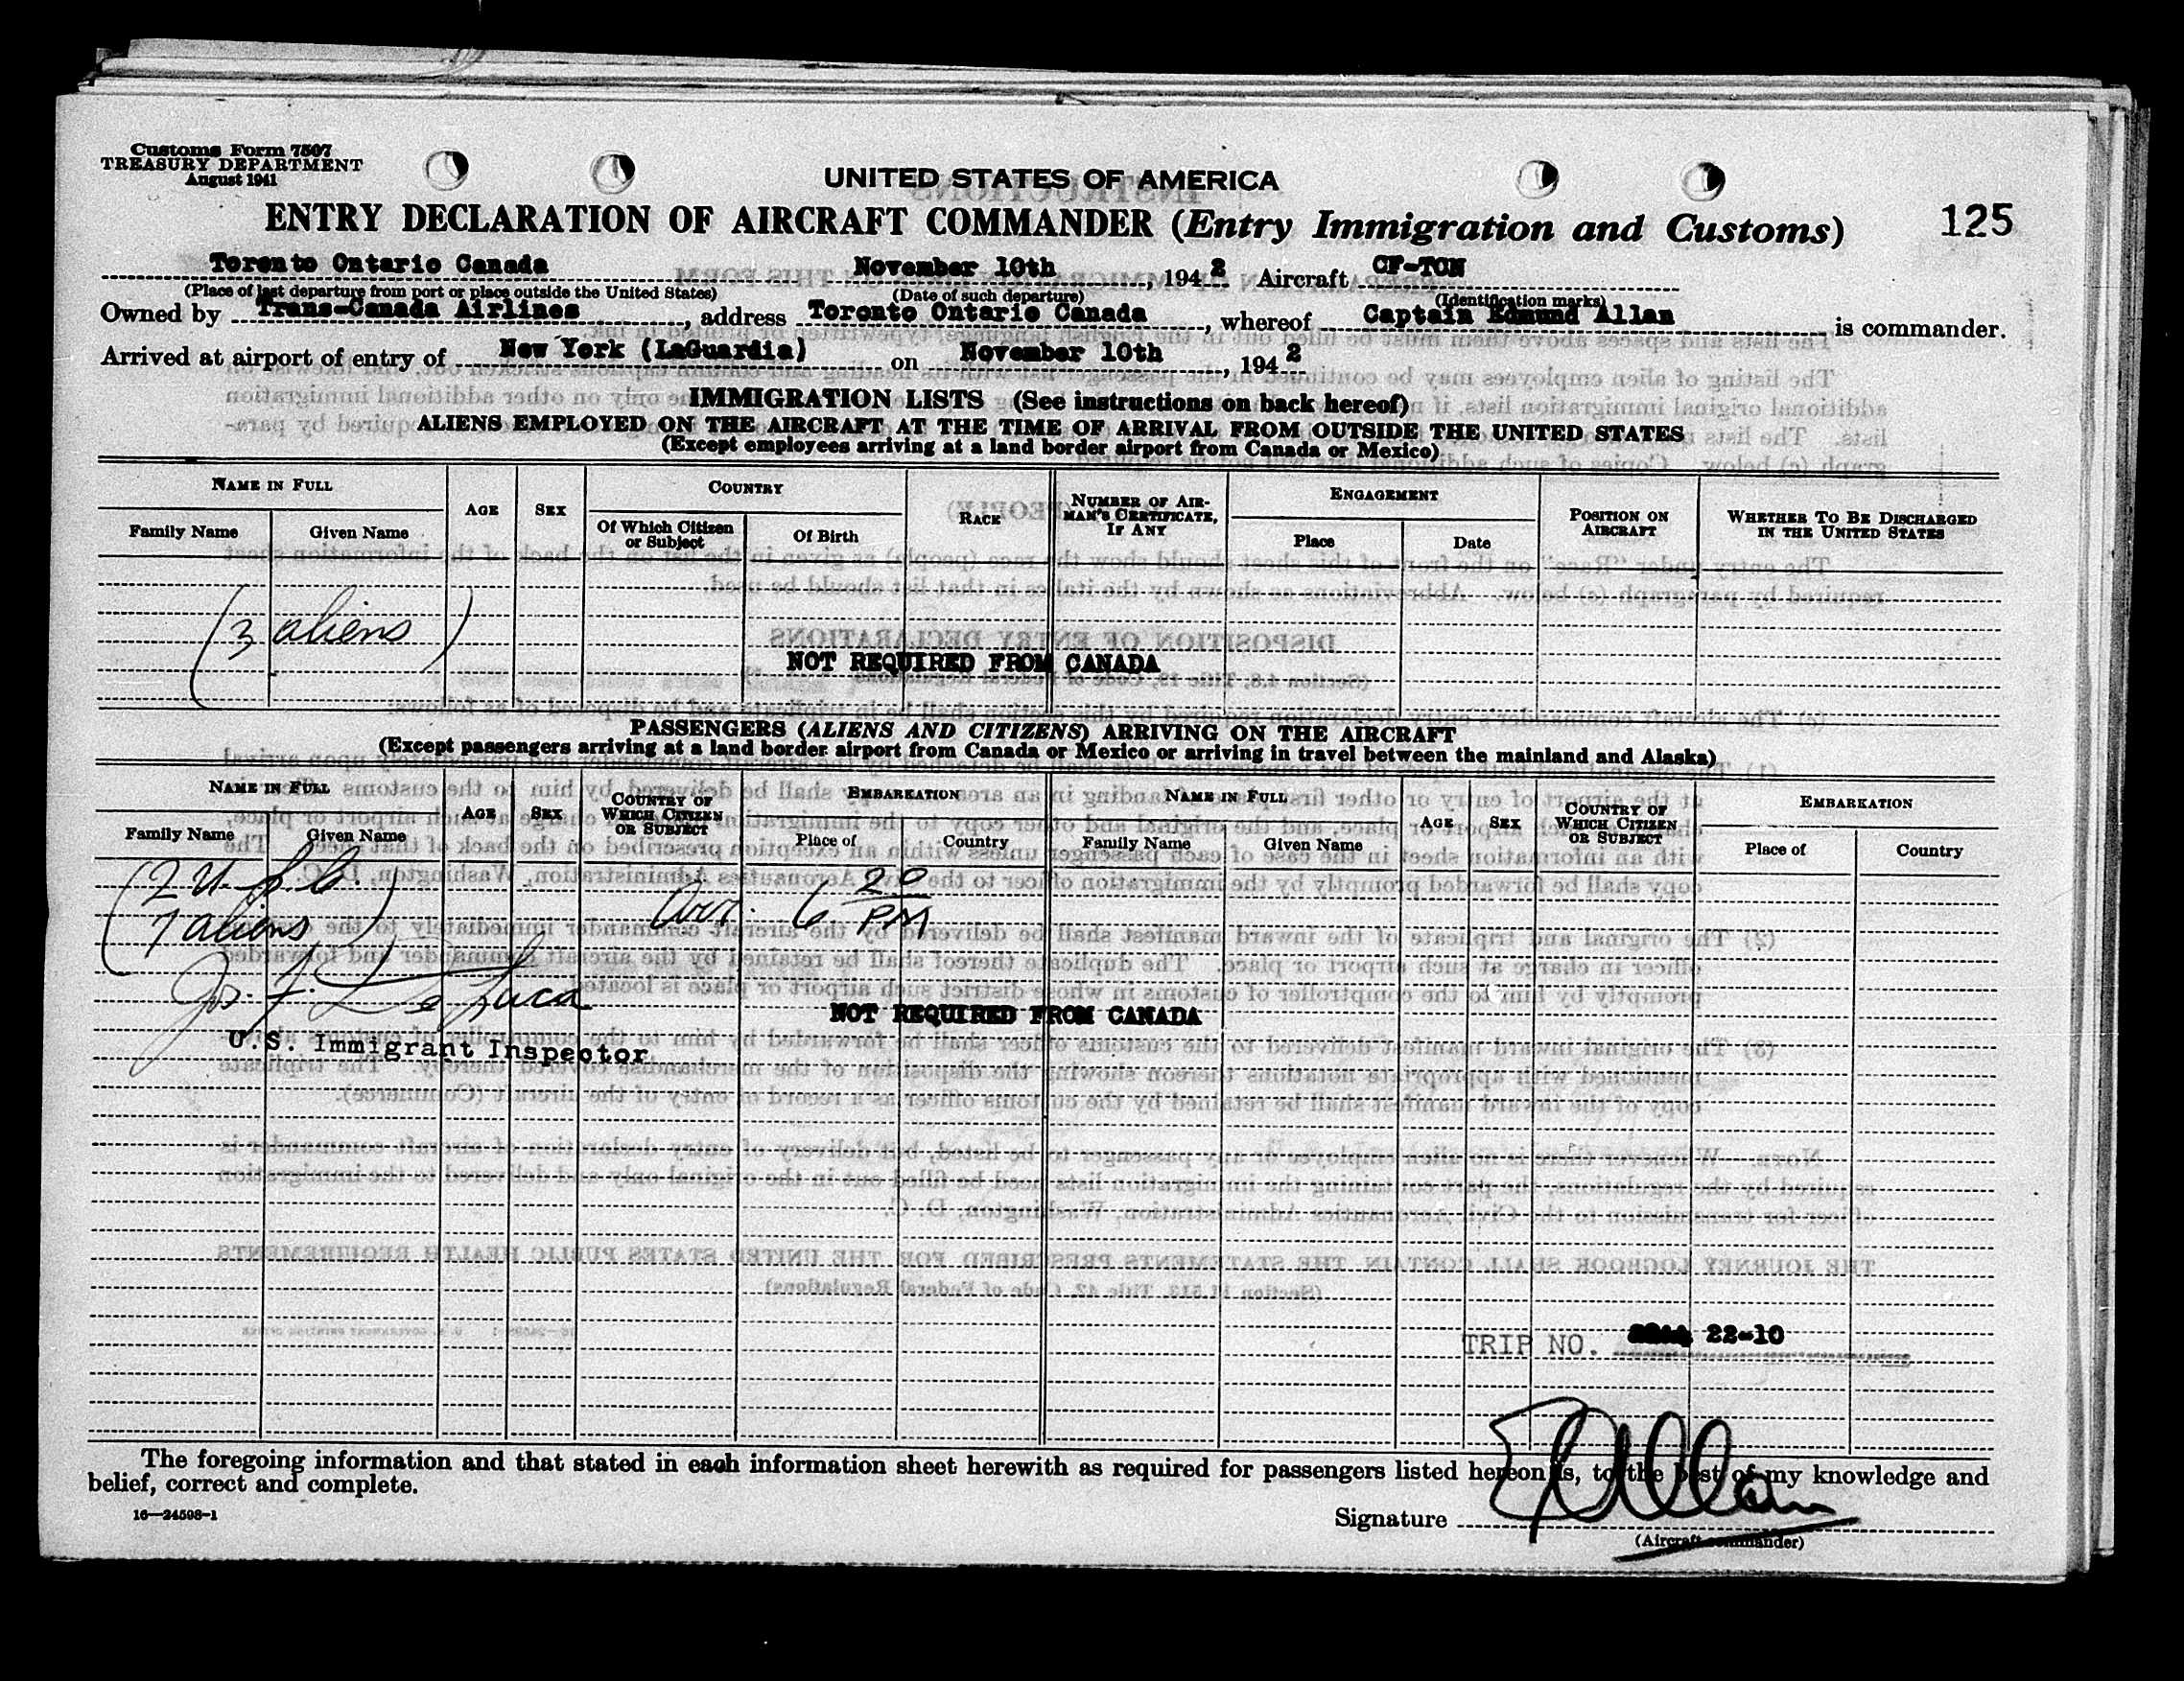 Customs Form 7507
TREASURY DEPARTMENT
August 1941
UNITED STATES OF AMERICA
ENTRY DECLARATION OF AIRCRAFT COMMANDER (Entry Immigration and Customs)
125
Toronto Ontario Canada November 10th, 1942 Aircraft CF-TCN
(Place of last departure from port or place outside the United States) (Date of such departure) (Identification marks)
Owned by Trans-Canada Airlines, address Toronto Ontario Canada, whereof Captain Edmund Allan is commander.
Arrived at airport of entry of New York (LaGuardia) on November 10th, 1942
IMMIGRATION LISTS (See instructions on back hereof)
ALIENS EMPLOYED ON THE AIRCRAFT AT THE TIME OF ARRIVAL FROM OUTSIDE THE UNITED STATES
(Except employees arriving at a land border airport from Canada or Mexico)
NAME IN FULL AGE SEX COUNTRY RACE NUMBER OF AIRMAN'S CERTIFICATE, IF ANY ENGAGEMENT POSITION ON AIRCRAFT WHETHER TO BE DISCHARGED IN THE UNITED STATES
Family Name Given Name Of Which Citizen or Subject Of Birth Place Date
(3 aliens)
NOT REQUIRED FROM CANADA
PASSENGERS (ALIENS AND CITIZENS) ARRIVING ON THE AIRCRAFT
(Except passengers arriving at a land border airport from Canada or Mexico or arriving in travel between the mainland and Alaska)
NAME IN FULL AGE SEX COUNTRY OF WHICH CITIZEN OR SUBJECT EMBARKATION NAME IN FULL AGE SEX COUNTRY OF WHICH CITIZEN OR SUBJECT EMBARKATION
Family Name Given Name Place of Country Family Name Given Name Place of Country
(2 U.S.C.
7 aliens) Arr. 6 20 PM
Jos. F. DeLuca
NOT REQUIRED FROM CANADA
U.S. Immigrant Inspector
TRIP NO. 22-10
The foregoing information and that stated in each information sheet herewith as required for passengers listed hereon is, to the best of my knowledge and
belief, correct and complete.
16—24598-1
Signature E Allan
(Aircraft commander)